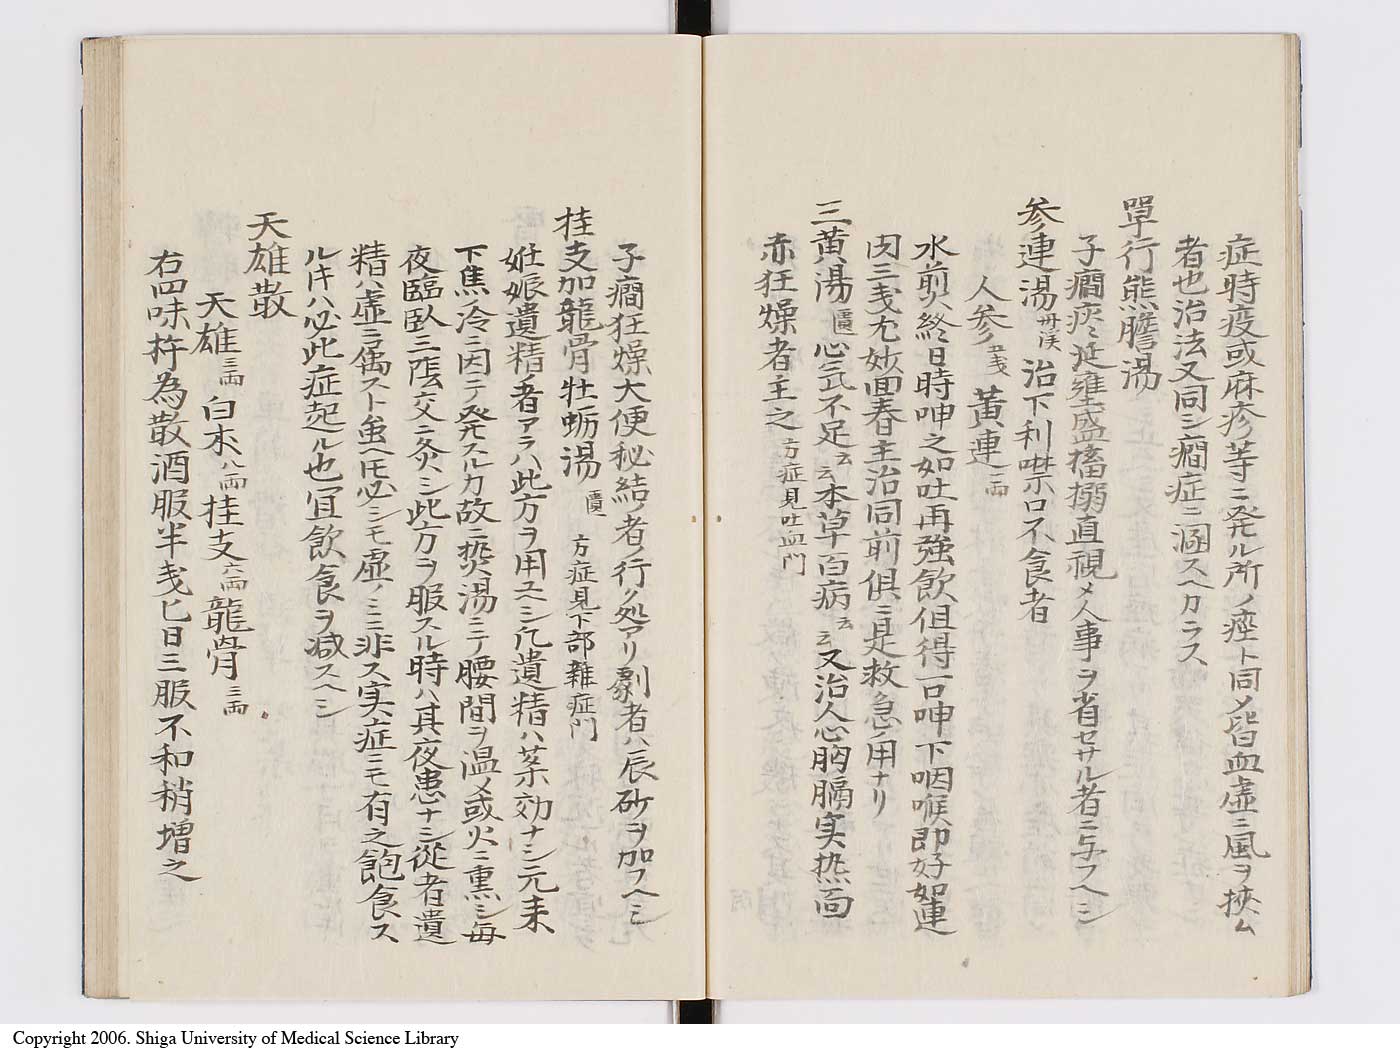 症時疫或麻疹等ニ発ル所ノ痙ト同メ皆血虚ニ風ヲ挾ム
者也治法又同シ癇症ニ混スヘカラス
単行熊膽湯
子癇痰涎壅盛搐搦直視メ人事ヲ省セサル者ニ与フヘシ
参連湯 丹渓 治下利噤口不食者
人参 五戔 黄連 一両
水煎終日時呷之如吐再強飲但得一口呷下咽喉即好如連
肉三戔尤妙回春主治同前俱ニ是救急ノ用ナリ
三黄湯 匱 心気不足云云本草百病云云又治人心胸膈実热面
赤狂燥者主之 方症見吐血門
子癇狂燥大便秘結ノ者ノ行ク処アリ劇者ハ辰砂ヲ加フヘシ
桂支加龍骨牡蛎湯 匱 方症見下部雜症門
妊娠遺精ノ者アラハ此方ヲ用ユヘシ凡遺精ハ薬効ナシ元来
下焦ノ冷ニ因テ発スルカ故ニ热湯ニテ腰間ヲ温メ或火ニ熏シ毎
夜臨臥三陰交ニ灸シ此方ヲ服スル時ハ其夜患ナシ従者遺
精ハ虚ニ属スト虽ヘ𪜈必シモ虚ノミニ非ス実症ニモ有之飽食ス
ル𬼀ハ必此症起ル也宜飲食ヲ減スヘシ
天雄散
天雄 三両 白朮 八両 桂支 六両 龍骨 三両
右四味杵為散酒服半戔匕日三服不和稍増之
Copyright 2006. Shiga University of Medical Science Library